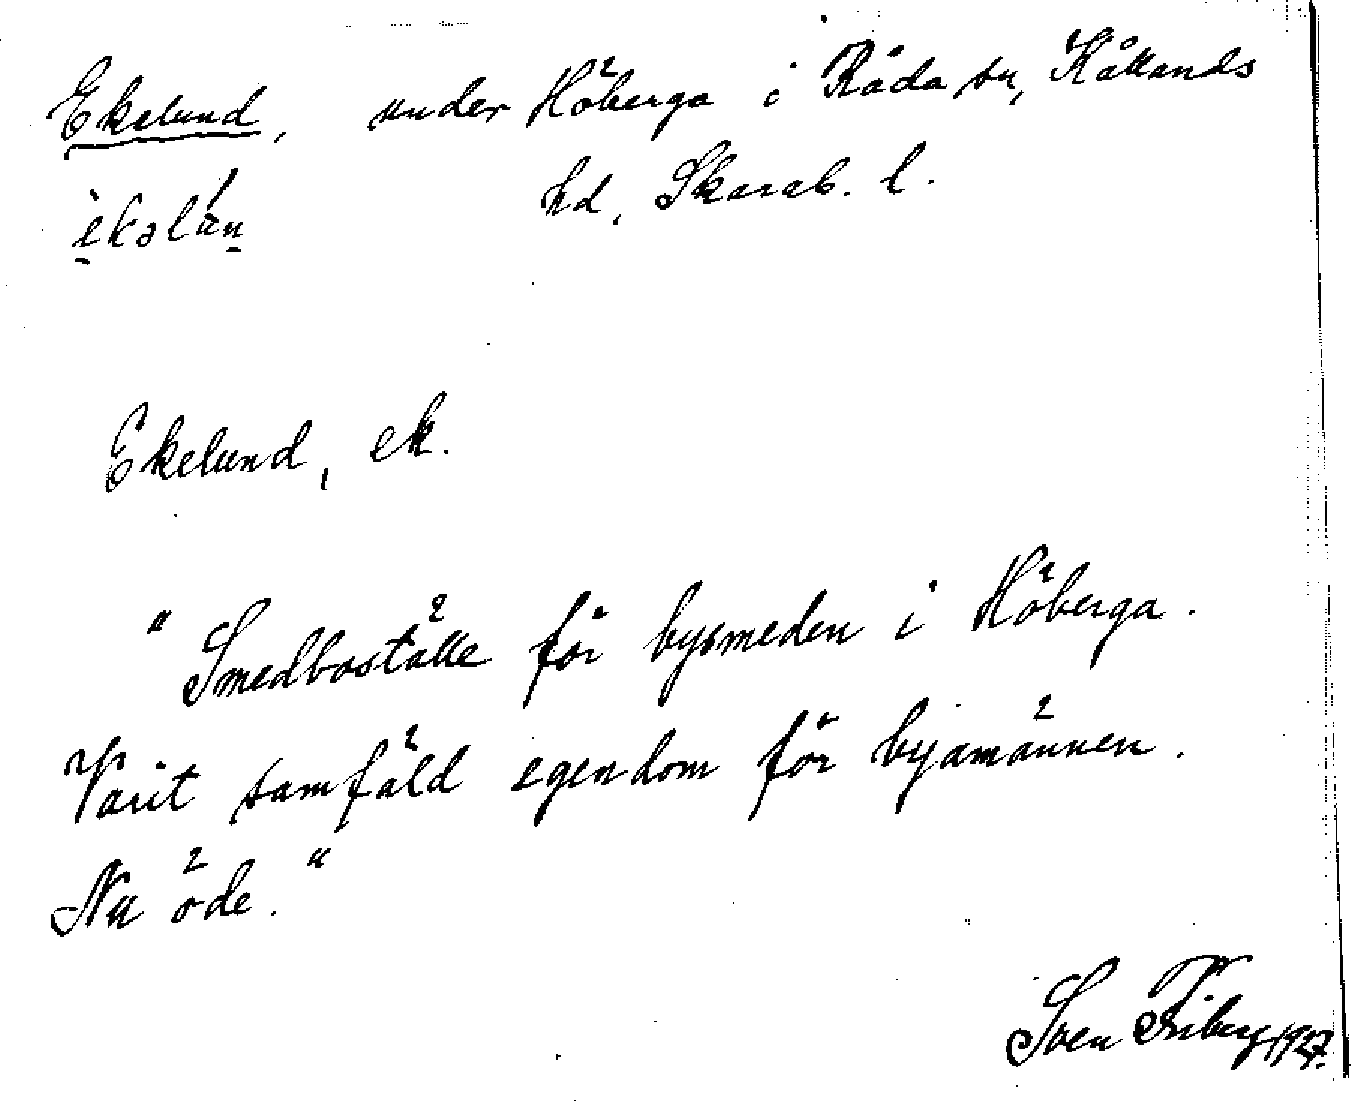 Ekelund, under Höberga i Råda sn, Kållands
hd, Skarab. l.
Ekelund, ek.
"Smedboställe för bysmeden i Höberga.
Varit samfäld egendom för byamännen.
Nu öde."
Sven Friberg 1927.